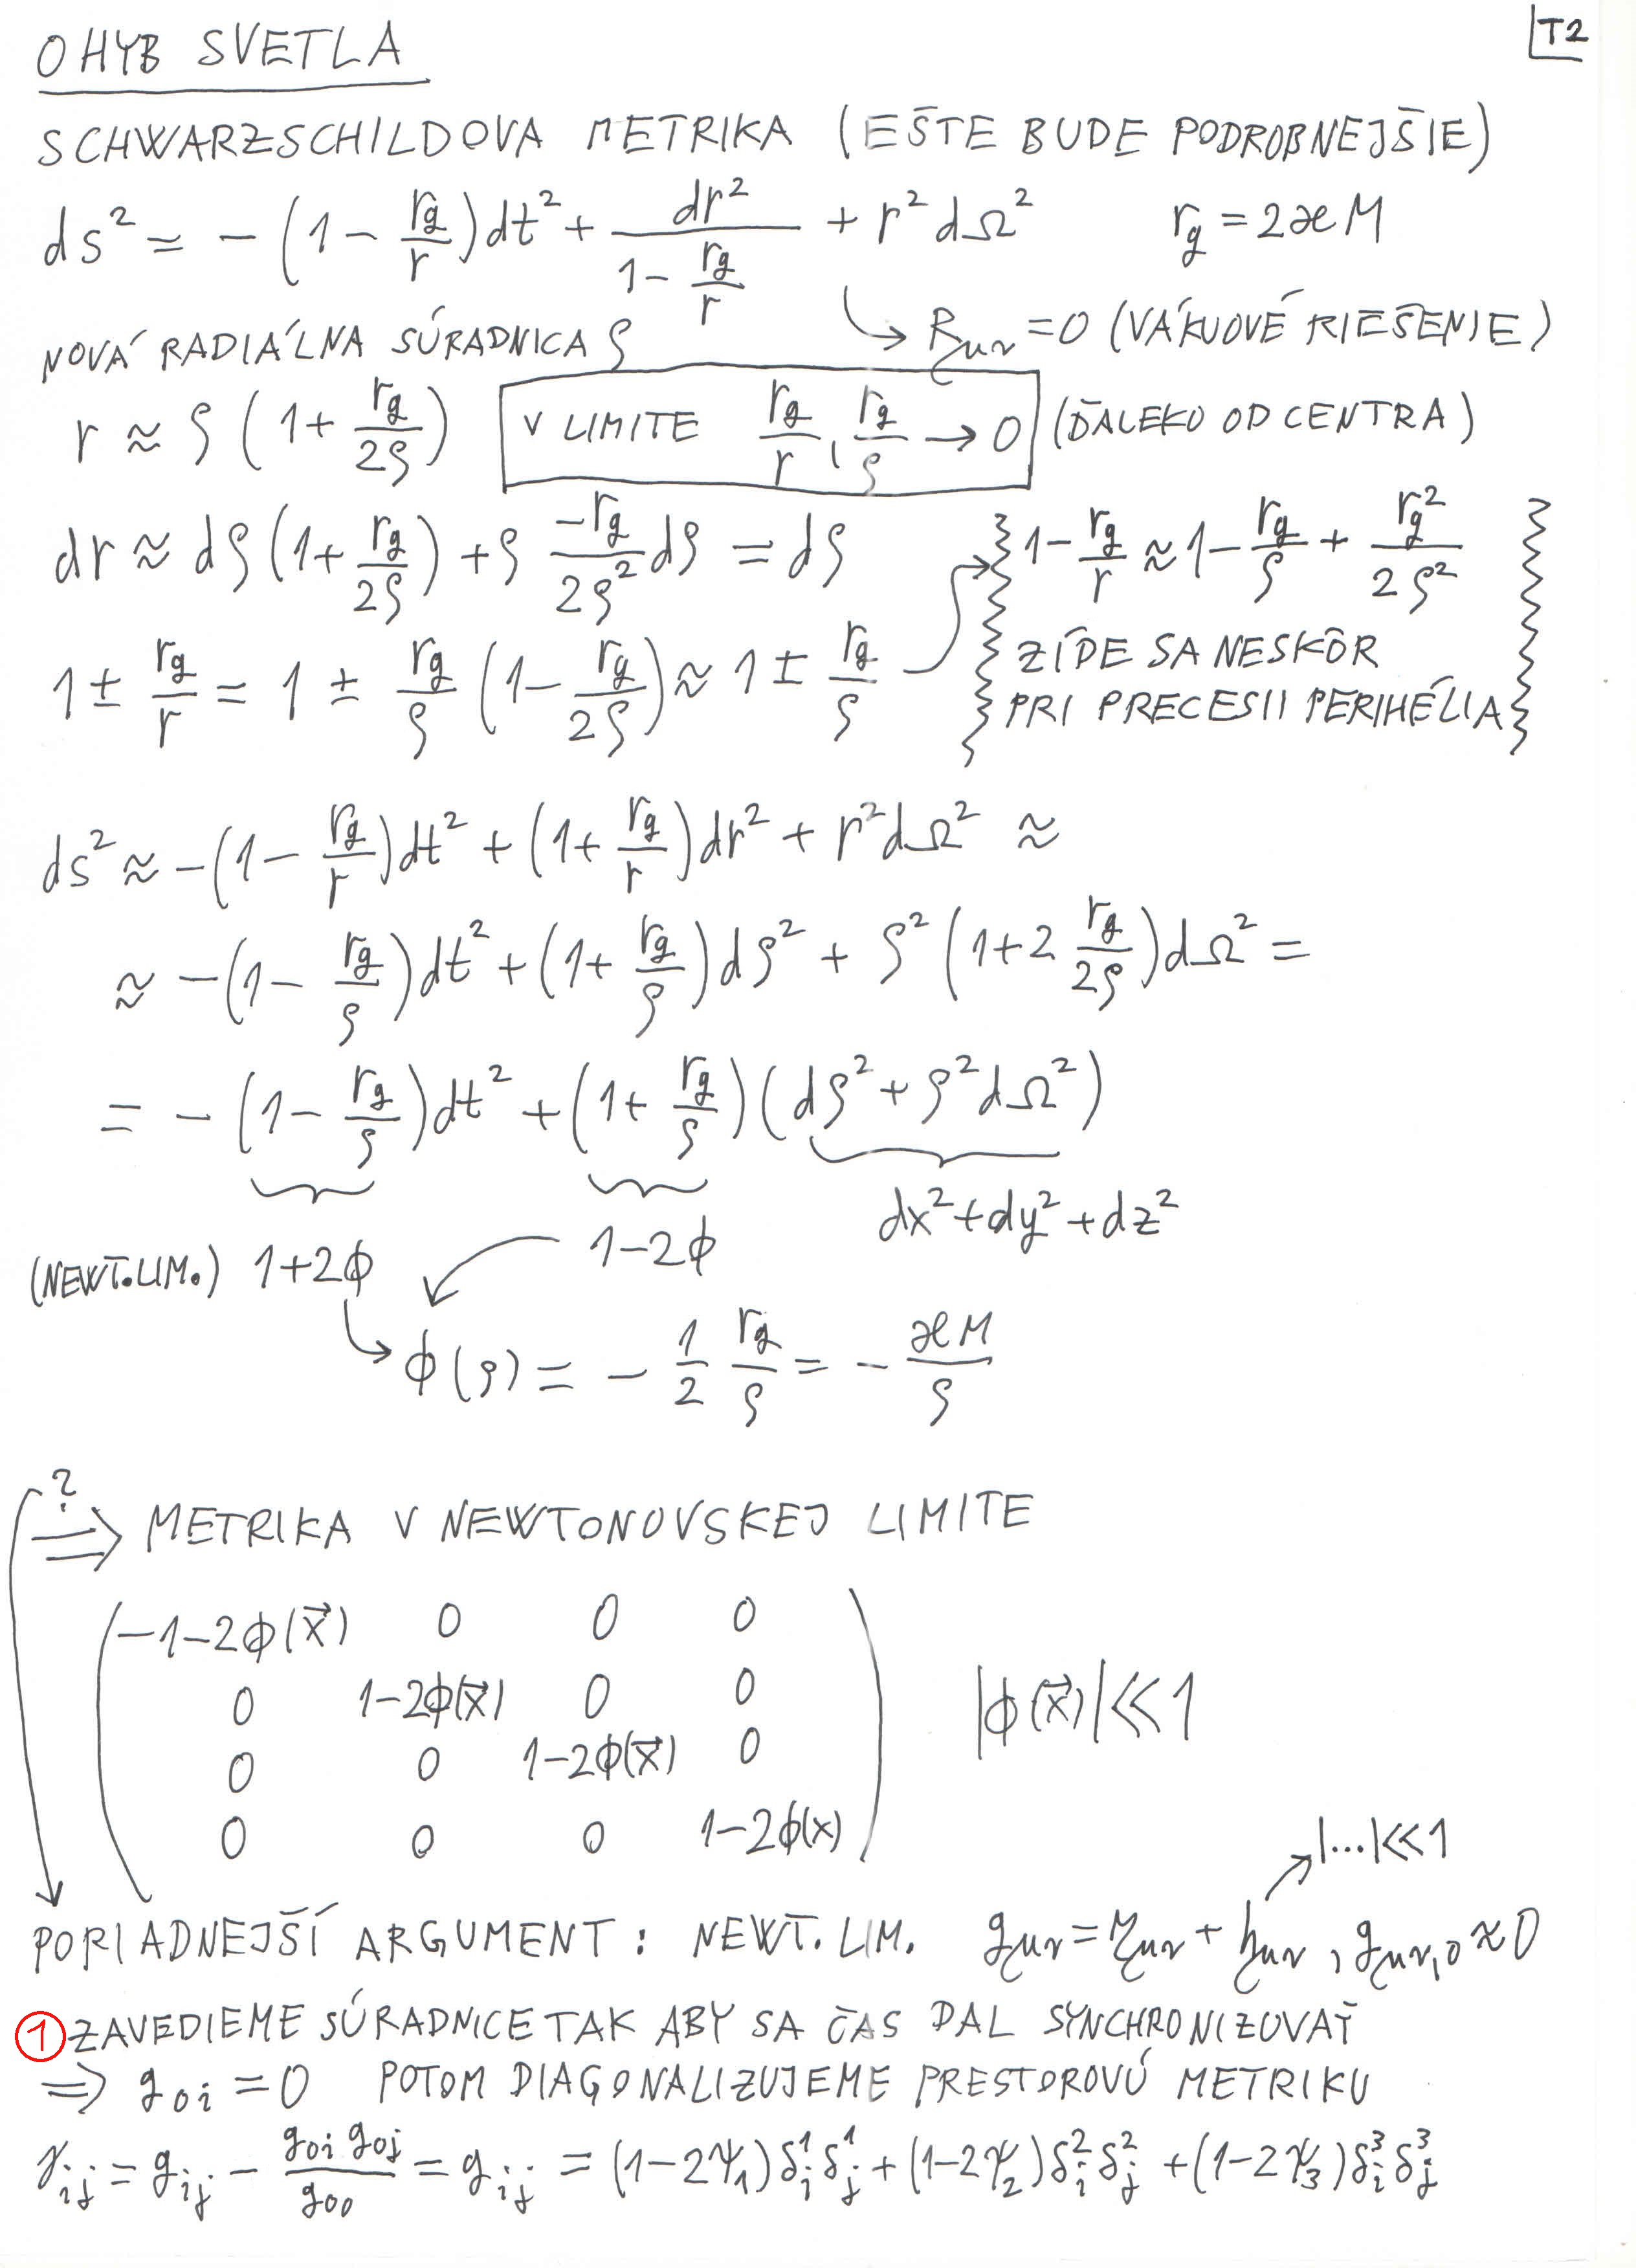 OHYB SVETLA
T2
SCHWARZSCHILDOVA METRIKA (EŠTE BUDE PODROBNEJŠIE)
ds² = -(1 - r_g/r)dt² + dr²/(1 - r_g/r) + r²dΩ² r_g = 2ϰM
↳ R_μν = 0 (VÁKUOVÉ RIEŠENIE)
NOVÁ RADIÁLNA SÚRADNICA ρ
r ≈ ρ(1 + r_g/2ρ) V LIMITE r_g/r, r_g/ρ → 0 (ĎALEKO OD CENTRA)
dr ≈ dρ(1 + r_g/2ρ) + ρ (-r_g/2ρ²) dρ = dρ
1 ± r_g/r = 1 ± r_g/ρ (1 - r_g/2ρ) ≈ 1 ± r_g/ρ
1 - r_g/r ≈ 1 - r_g/ρ + r_g²/2ρ²
ZÍDE SA NESKÔR
PRI PRECESII PERIHÉLIA
ds² ≈ -(1 - r_g/r)dt² + (1 + r_g/r)dr² + r²dΩ² ≈
≈ -(1 - r_g/ρ)dt² + (1 + r_g/ρ)dρ² + ρ²(1 + 2 r_g/2ρ)dΩ² =
= -(1 - r_g/ρ)dt² + (1 + r_g/ρ)(dρ² + ρ²dΩ²)
dx² + dy² + dz²
(NEWT. LIM.) 1+2ϕ 1-2ϕ
ϕ(ρ) = - 1/2 r_g/ρ = - ϰM/ρ
? ⇒ METRIKA V NEWTONOVSKEJ LIMITE
-1-2ϕ(x⃗) 0 0 0
0 1-2ϕ(x⃗) 0 0
0 0 1-2ϕ(x⃗) 0
0 0 0 1-2ϕ(x)
|ϕ(x⃗)| ≪ 1
|...| ≪ 1
PORIADNEJŠÍ ARGUMENT: NEWT. LIM. g_μν = η_μν + h_μν, g_μν,0 ≈ 0
① ZAVEDIEME SÚRADNICE TAK ABY SA ČAS DAL SYNCHRONIZOVAŤ
⇒ g_0i = 0 POTOM DIAGONALIZUJEME PRESTOROVÚ METRIKU
γ_ij = g_ij - g_0i g_0j/g_00 = g_ij = (1-2ψ_1)δ_i^1 δ_j^1 + (1-2ψ_2)δ_i^2 δ_j^2 + (1-2ψ_3)δ_i^3 δ_j^3